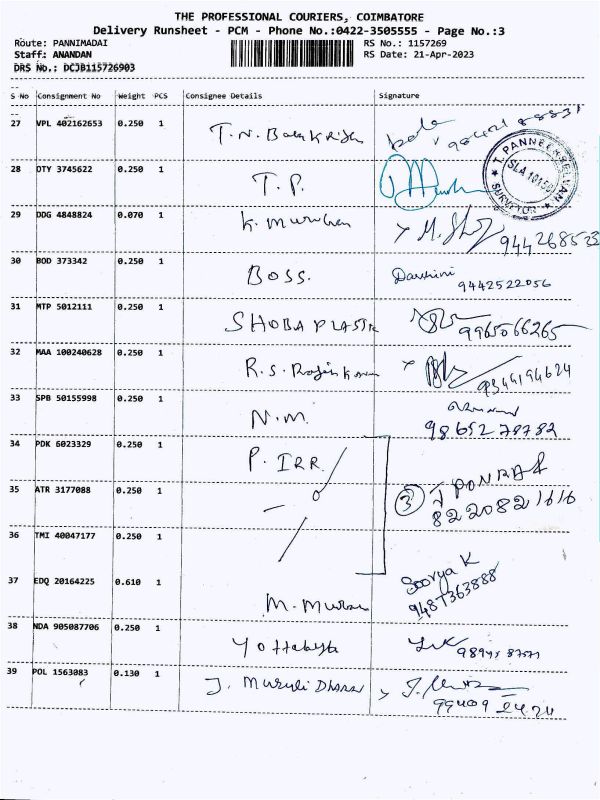 THE PROFESSIONAL COURIERS, COIMBATORE
Delivery Runsheet - PCM - Phone No.:0422-3505555 - Page No.:3
Route: PANNIMADAI RS No.: 1157269
Staff: ANANDAN RS Date: 21-Apr-2023
DRS No.: DCJB115726903
S No Consignment No Weight PCS Consignee Details Signature
27 VPL 402162653 0.250 1 T.N.
28 OTY 3745622 0.250 1 T.P.
T. PANNEERSELVAM
SURVEYOR
29 DDG 4848824 0.070 1 K.
30 BOD 373342 0.250 1 BOSS. Darshini 9442522056
31 MTP 5012111 0.250 1 SHOBA PLASTIK 9965066265
32 MAA 100240628 0.250 1 R.S. 9344194624
33 SPB 50155998 0.250 1 N.M. 9865278782
34 PDK 6023329 0.250 1 P. IRR.
35 ATR 3177088 0.250 1 3 J PONRAJ
8220821616
36 TMI 40047177 0.250 1
37 EDQ 20164225 0.610 1 M. Soorya K
38 NDA 905087706 0.250 1
39 POL 1563083 0.130 1 J. Murali